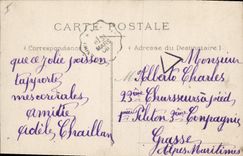 CARTE POSTALE
Correspondance
Adresse du Destinataire
Monsieur
que ce jolie poisson
t'apporte
mes cordiales
amitié
Adèle Chaillan
Allbato Charles
23ème Chasseurs à pied
1er Peloton 3ème Compagnie
Grasse
Alpes Maritimes